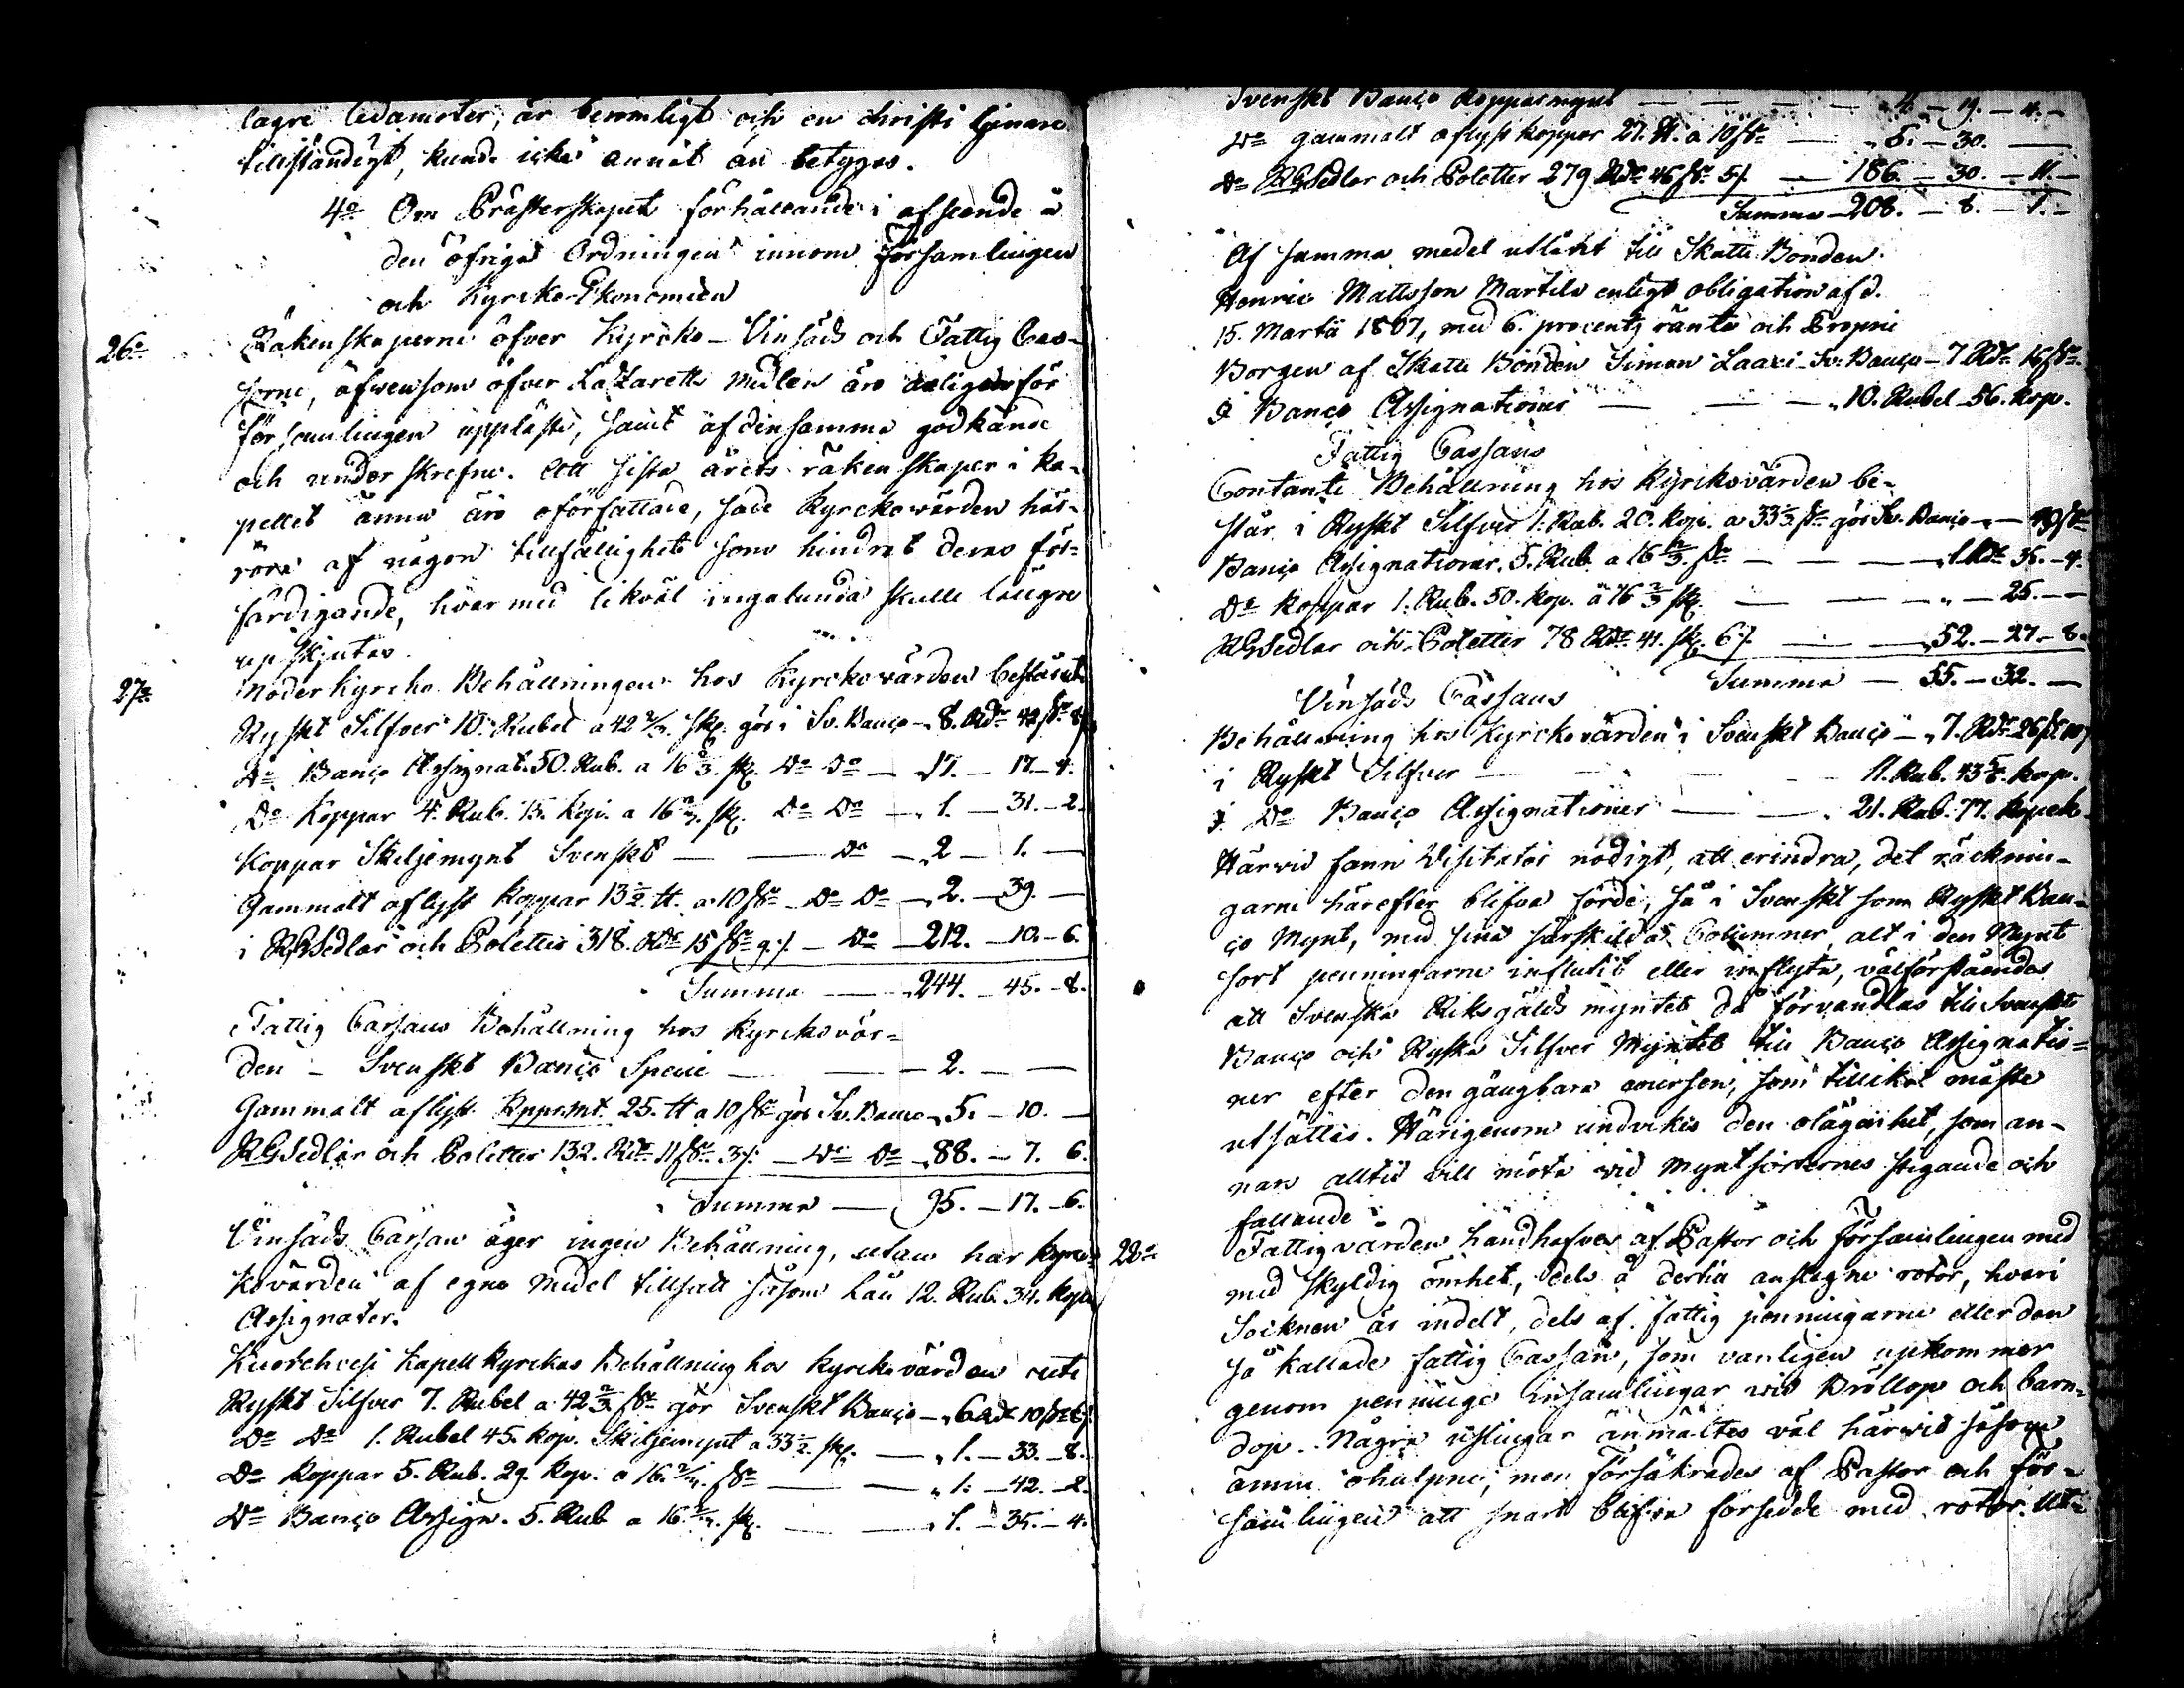 lagre ledamöter, är lemmligt och en Christi tjenare
tillständigt, kunde icke annat än betygas.
4o Om Prästerskapets förhållande i afseende å
den öfriga Ordningen innom Församlingen
och Kyrcko-Ekonomien
26o Räkenskaperne öfver Kyrcko- Vinsäds och Fattig Cas-
sorne, äfwensom öfver Lazaretts medlen äro årligen för
församlingen uppläste, samt af densamma godkände
och underskrefne. Att sista årets räkenskaper i ka-
pellet ännu äro oförfattade, sade Kyrckowärden här-
röra af någon tillfällighet som hindrat deras för-
färdigande, hvarmed likväl ingalunda skulle längre
upskjutas.
27o Moderkyrcko Behållningen hos Kyrckovärden bestående
Ryskt Silfver 10. Rubel a 42 2/3 sk. gör i Sv. Banco - 8. Rdr 42 sk. 8
Do Banco Assignat. 50. Rub. a 16 2/3. sk. Do Do - 17. - 17 - 4.
Do Koppar 4. Rub. 15. Kop. a 16 2/3. sk. Do Do - 1. - 31. - 2.
Koppar Skiljemynt Svenskt - Do - 2 - 1. -
Gammalt aflyst koppar 13 1/2 tt. a 10 sk Do Do - 2. - 39. -
i RGSedlar och Poletter 318. Rdr 15 sk 9. - Do - 212. - 10. - 6.
Summa - 244. - 45. - 8.
Fattig Cassans Behållning hos Kyrckovär-
den - Svenskt Banco Specie - 2. - -
Gammalt aflyst. Kopp.mt. 25. tt a 10 sk gör Sv. Banco - 5. - 10. -
RGSedlar och Poletter 132. Rdr. 11 sk. 3. - Do Do - 88. - 7. 6.
Summa - 95. - 17. - 6.
Vinsäds Cassan äger ingen Behållning, utan har Kyrc-
kovärden af egna medel tillsatt såsom Lån 12. Rub. 34. Kop.
Assignater.
Kuorehvesi Kapellkyrckas Behållning hos Kyrckovärden uti
Ryskt Silfver 7. Rubel a 42 2/3 sk gör Svenskt Banco - 6 Rdr 10 sk 8
Do Do 1. Rubel 45. kop. Skiljemynt a 33 1/2. sk. - 1. - 33. - 8.
Do Koppar 5. Rub. 29. Kop. a 16. 2/3. sk - 1. - 42. - 2.
Do Banco Assign. 5. Rub a 16 2/3. sk. - 1. - 35. - 4.
Svenskt Banco Kopparmynt - 4. - 19. - 4. -
Do gammalt aflyst koppar 27. tt. a 10 sk - 5. - 30. -
Do RGSedlar och Poletter 279 Rdr 46 sk 5. - 186. - 30. - 11. -
Summa - 208. - 8. - 1. -
Af samma medel utlånt till Skatte Bonden
Henric Mattsson Martila enligt obligation af d.
15. Martii 1807, med 6. procents ränta och Proprie
Borgen af Skatte Bonden Simon Laari Sv. Banco - 7 Rdr 16 sk.
I Banco Assignationer - 10. Rubel 56. Kop.
Fattig Cassans
Contante Behållning hos Kyrckovärden be-
står i Ryskt Silfver 1. Rub. 20. kop. a 33 1/3. sk gör Sv. Banco - 40 sk
Banco Assignationer. 5. Rub a 16 2/3. sk - 1. Rdr 35. - 4.
Do Koppar 1. Rub. 50. kop. a 16 2/3 sk. - 25. -
RGSedlar och Poletter 78 Rdr. 41. sk. 6. - 52. - 27. - 8.
Summa - 55. - 32. -
Vinsäds Cassans
Behållning hos Kyrckovärden i Svenskt Banco - 7. Rdr 26 sk 10
i Ryskt Silfver - 11. Rub. 43 5/8. kop.
i Do Banco Assignationer - 21. Rub. 77. Kopek.
Härvid fann Visitator nödigt, att erindra, det räcknin-
garne härefter blifva förde, så i Svenskt som Ryskt Ban-
co Mynt, med sina särskilda Columner, alt i den Mynt
sort penningarne influtit eller inflyta, välförståendes
att Svenska Riksgälds myntet då förvandlas till Svenskt
Banco och Ryska Silfver Myntet till Banco Assignatio-
ner efter den gångbara coursen, som tillika måste
utsättas. Härigenom undvikes den olägenhet, som an-
nars alltid vill möta vid Myntsorternes stigande och
fallande
28o Fattigvården handhafves af Pastor och Församlingen med
med skyldig ömhet, dels å dertill anslagne rotar, hvari
Socknen är indelt, dels af fattig penningarne eller den
så kallade fattig Cassan, som vanligen upkommer
genom penninge insamlingar vid Bröllop och barn-
dop. Några uslingar anmältes väl härvid såsom
ännu ohulpne, men försäkrades af Pastor och För-
samlingen att snart blifva försedde med rotar. Ut-